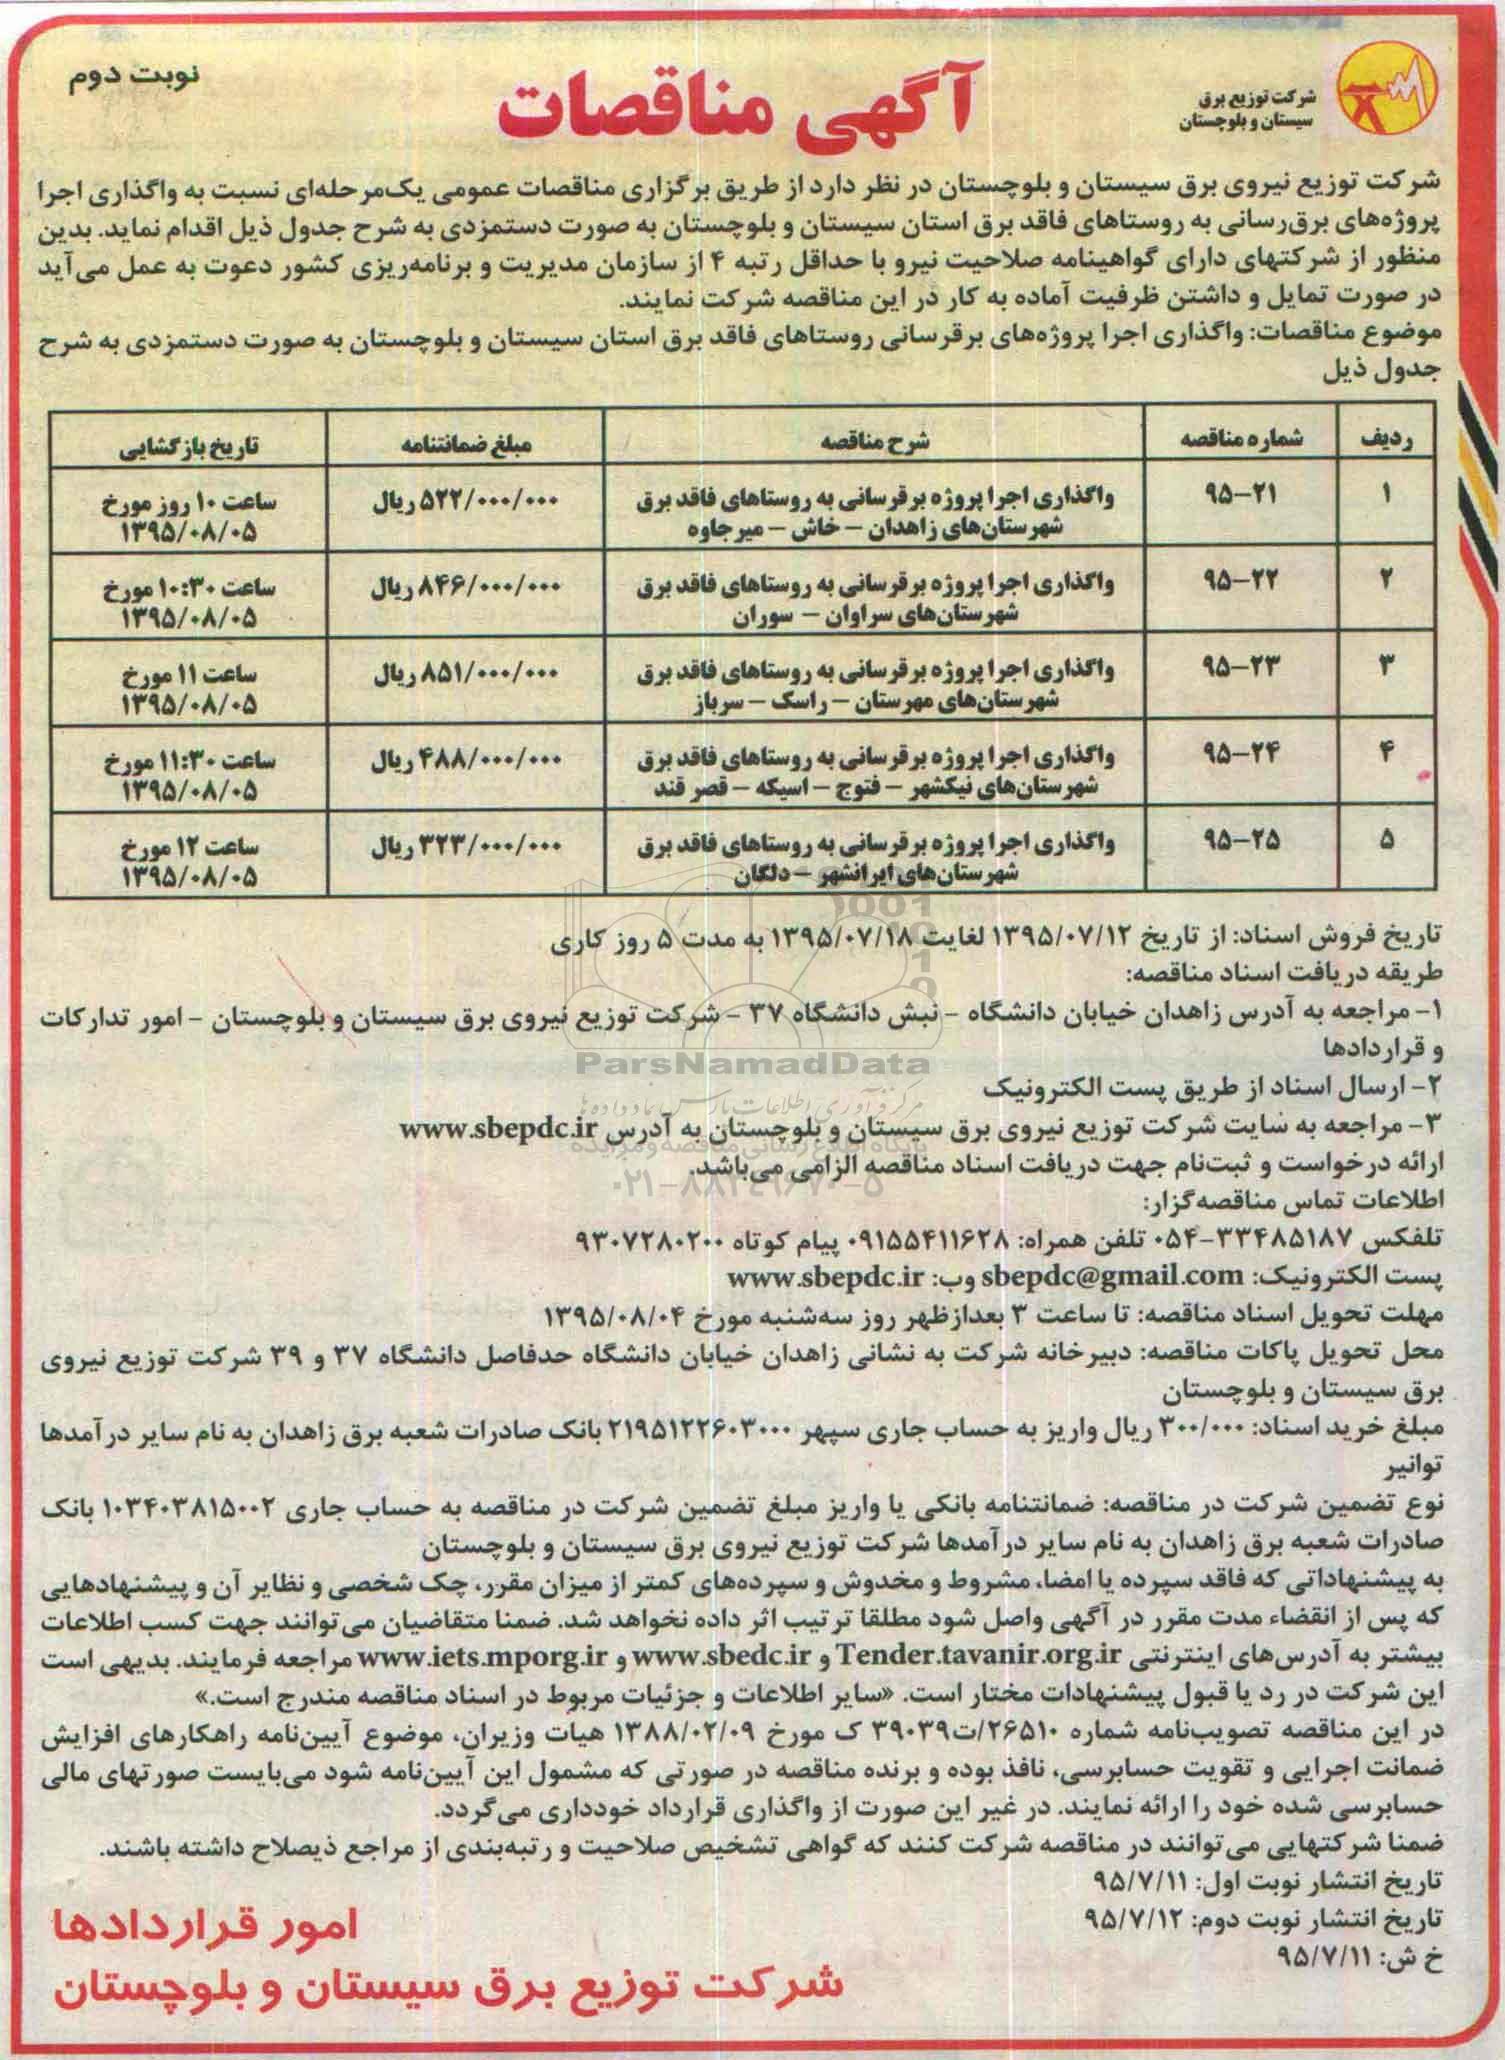 شرکت توزیع برق
سیستان و بلوچستان
آگهی مناقصات
نوبت دوم
شرکت توزیع نیروی برق سیستان و بلوچستان در نظر دارد از طریق برگزاری مناقصات عمومی یک‌مرحله‌ای نسبت به واگذاری اجرا
پروژه‌های برق‌رسانی به روستاهای فاقد برق استان سیستان و بلوچستان به صورت دستمزدی به شرح جدول ذیل اقدام نماید. بدین
منظور از شرکتهای دارای گواهینامه صلاحیت نیرو با حداقل رتبه ۴ از سازمان مدیریت و برنامه‌ریزی کشور دعوت به عمل می‌آید
در صورت تمایل و داشتن ظرفیت آماده به کار در این مناقصه شرکت نمایند.
موضوع مناقصات: واگذاری اجرا پروژه‌های برقرسانی روستاهای فاقد برق استان سیستان و بلوچستان به صورت دستمزدی به شرح
جدول ذیل
ردیف شماره مناقصه شرح مناقصه مبلغ ضمانتنامه تاریخ بازگشایی
۱ ۹۵-۲۱ واگذاری اجرا پروژه برقرسانی به روستاهای فاقد برق ۵۲۲/۰۰۰/۰۰۰ ریال ساعت ۱۰ روز مورخ
شهرستان‌های زاهدان – خاش – میرجاوه ۱۳۹۵/۰۸/۰۵
۲ ۹۵-۲۲ واگذاری اجرا پروژه برقرسانی به روستاهای فاقد برق ۸۴۶/۰۰۰/۰۰۰ ریال ساعت ۱۰:۳۰ مورخ
شهرستان‌های سراوان – سوران ۱۳۹۵/۰۸/۰۵
۳ ۹۵-۲۳ واگذاری اجرا پروژه برقرسانی به روستاهای فاقد برق ۸۵۱/۰۰۰/۰۰۰ ریال ساعت ۱۱ مورخ
شهرستان‌های مهرستان – راسک – سرباز ۱۳۹۵/۰۸/۰۵
۴ ۹۵-۲۴ واگذاری اجرا پروژه برقرسانی به روستاهای فاقد برق ۴۸۸/۰۰۰/۰۰۰ ریال ساعت ۱۱:۳۰ مورخ
شهرستان‌های نیکشهر – فنوج – اسپکه – قصر قند ۱۳۹۵/۰۸/۰۵
۵ ۹۵-۲۵ واگذاری اجرا پروژه برقرسانی به روستاهای فاقد برق ۳۲۳/۰۰۰/۰۰۰ ریال ساعت ۱۲ مورخ
شهرستان‌های ایرانشهر – دلگان ۱۳۹۵/۰۸/۰۵
تاریخ فروش اسناد: از تاریخ ۱۳۹۵/۰۷/۱۲ لغایت ۱۳۹۵/۰۷/۱۸ به مدت ۵ روز کاری
طریقه دریافت اسناد مناقصه:
۱- مراجعه به آدرس زاهدان خیابان دانشگاه - نبش دانشگاه ۳۷ - شرکت توزیع نیروی برق سیستان و بلوچستان - امور تدارکات
و قراردادها
ParsNamadData
۲- ارسال اسناد از طریق پست الکترونیک
مرکز فرآوری اطلاعات پارس نماد داده‌ها
۳- مراجعه به سایت شرکت توزیع نیروی برق سیستان و بلوچستان به آدرس www.sbepdc.ir
پایگاه اطلاع رسانی مناقصه و مزایده
ارائه درخواست و ثبت‌نام جهت دریافت اسناد مناقصه الزامی می‌باشد.
۰۲۱-۸۸۳۴۹۶۷۰-۵
اطلاعات تماس مناقصه‌گزار:
تلفکس ۳۳۴۸۵۱۸۷-۰۵۴ تلفن همراه: ۰۹۱۵۵۴۱۱۶۲۸ پیام کوتاه ۹۳۰۷۲۸۰۲۰۰
پست الکترونیک: sbepdc@gmail.com وب: www.sbepdc.ir
مهلت تحویل اسناد مناقصه: تا ساعت ۳ بعدازظهر روز سه‌شنبه مورخ ۱۳۹۵/۰۸/۰۴
محل تحویل پاکات مناقصه: دبیرخانه شرکت به نشانی زاهدان خیابان دانشگاه حدفاصل دانشگاه ۳۷ و ۳۹ شرکت توزیع نیروی
برق سیستان و بلوچستان
مبلغ خرید اسناد: ۳۰۰/۰۰۰ ریال واریز به حساب جاری سپهر ۲۱۹۵۱۲۲۶۰۳۰۰۰ بانک صادرات شعبه برق زاهدان به نام سایر درآمدها
توانیر
نوع تضمین شرکت در مناقصه: ضمانتنامه بانکی یا واریز مبلغ تضمین شرکت در مناقصه به حساب جاری ۱۰۳۴۰۳۸۱۵۰۰۲ بانک
صادرات شعبه برق زاهدان به نام سایر درآمدها شرکت توزیع نیروی برق سیستان و بلوچستان
به پیشنهاداتی که فاقد سپرده یا امضا، مشروط و مخدوش و سپرده‌های کمتر از میزان مقرر، چک شخصی و نظایر آن و پیشنهادهایی
که پس از انقضاء مدت مقرر در آگهی واصل شود مطلقا ترتیب اثر داده نخواهد شد. ضمنا متقاضیان می‌توانند جهت کسب اطلاعات
بیشتر به آدرس‌های اینترنتی Tender.tavanir.org.ir و www.sbedc.ir و www.iets.mporg.ir مراجعه فرمایند. بدیهی است
این شرکت در رد یا قبول پیشنهادات مختار است. «سایر اطلاعات و جزئیات مربوط در اسناد مناقصه مندرج است.»
در این مناقصه تصویب‌نامه شماره ۲۶۵۱۰/ت۳۹۰۳۹ ک مورخ ۱۳۸۸/۰۲/۰۹ هیات وزیران، موضوع آیین‌نامه راهکارهای افزایش
ضمانت اجرایی و تقویت حسابرسی، نافذ بوده و برنده مناقصه در صورتی که مشمول این آیین‌نامه شود می‌بایست صورتهای مالی
حسابرسی شده خود را ارائه نمایند. در غیر این صورت از واگذاری قرارداد خودداری می‌گردد.
ضمنا شرکتهایی می‌توانند در مناقصه شرکت کنند که گواهی تشخیص صلاحیت و رتبه‌بندی از مراجع ذیصلاح داشته باشند.
تاریخ انتشار نوبت اول: ۹۵/۷/۱۱
تاریخ انتشار نوبت دوم: ۹۵/۷/۱۲
خ ش: ۹۵/۷/۱۱
امور قراردادها
شرکت توزیع برق سیستان و بلوچستان